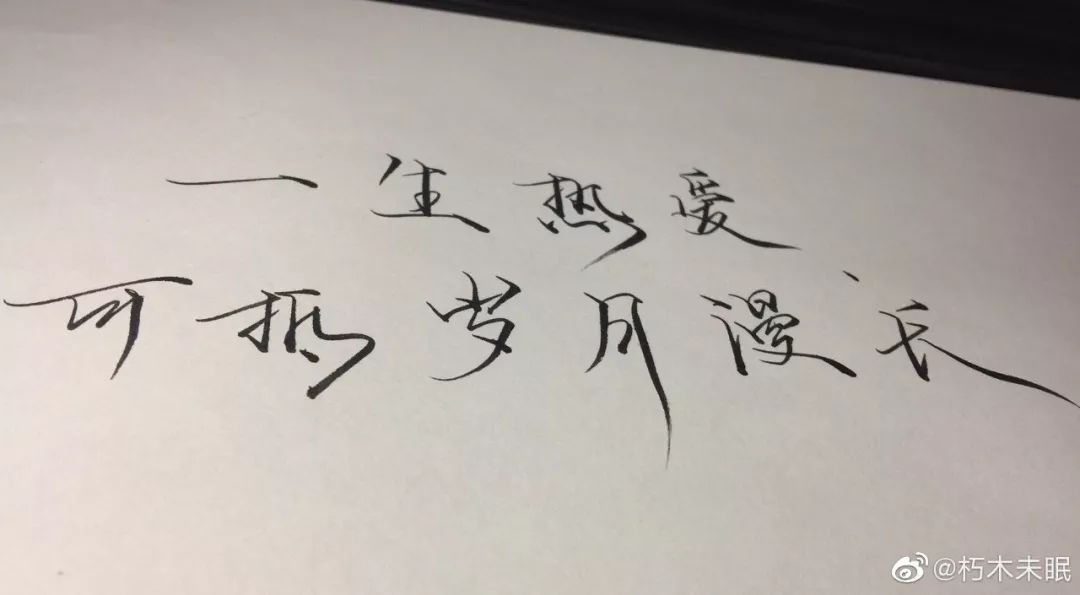 一生热爱
可抵岁月漫长
@朽木未眠